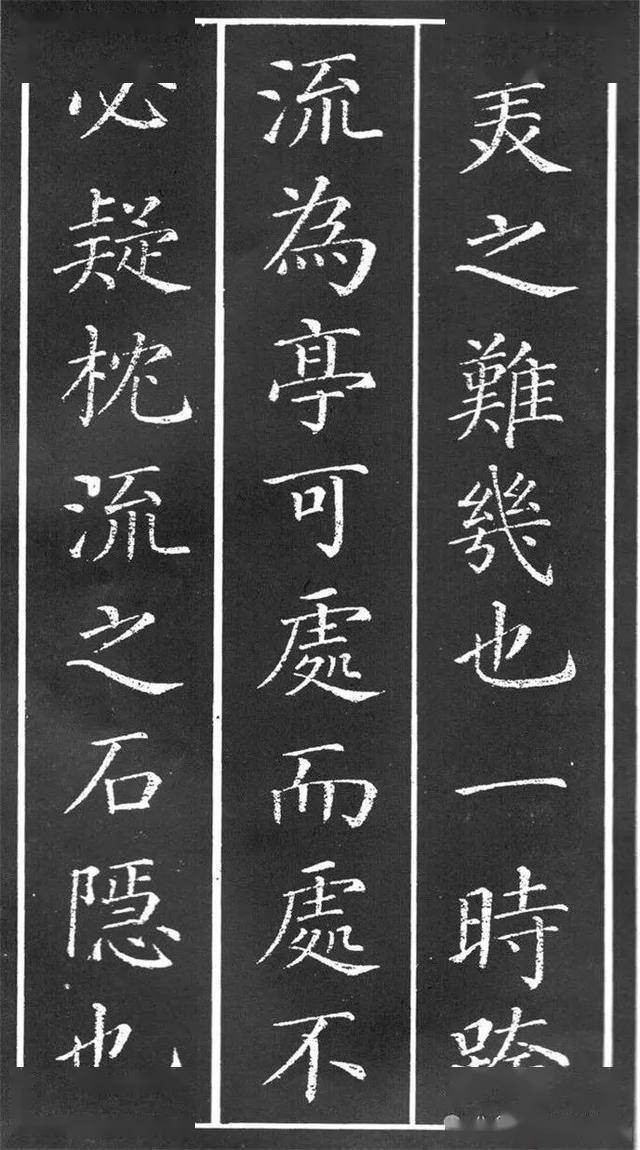 美之難幾也一時跨
流為亭可處而處不
必疑枕流之石隱也